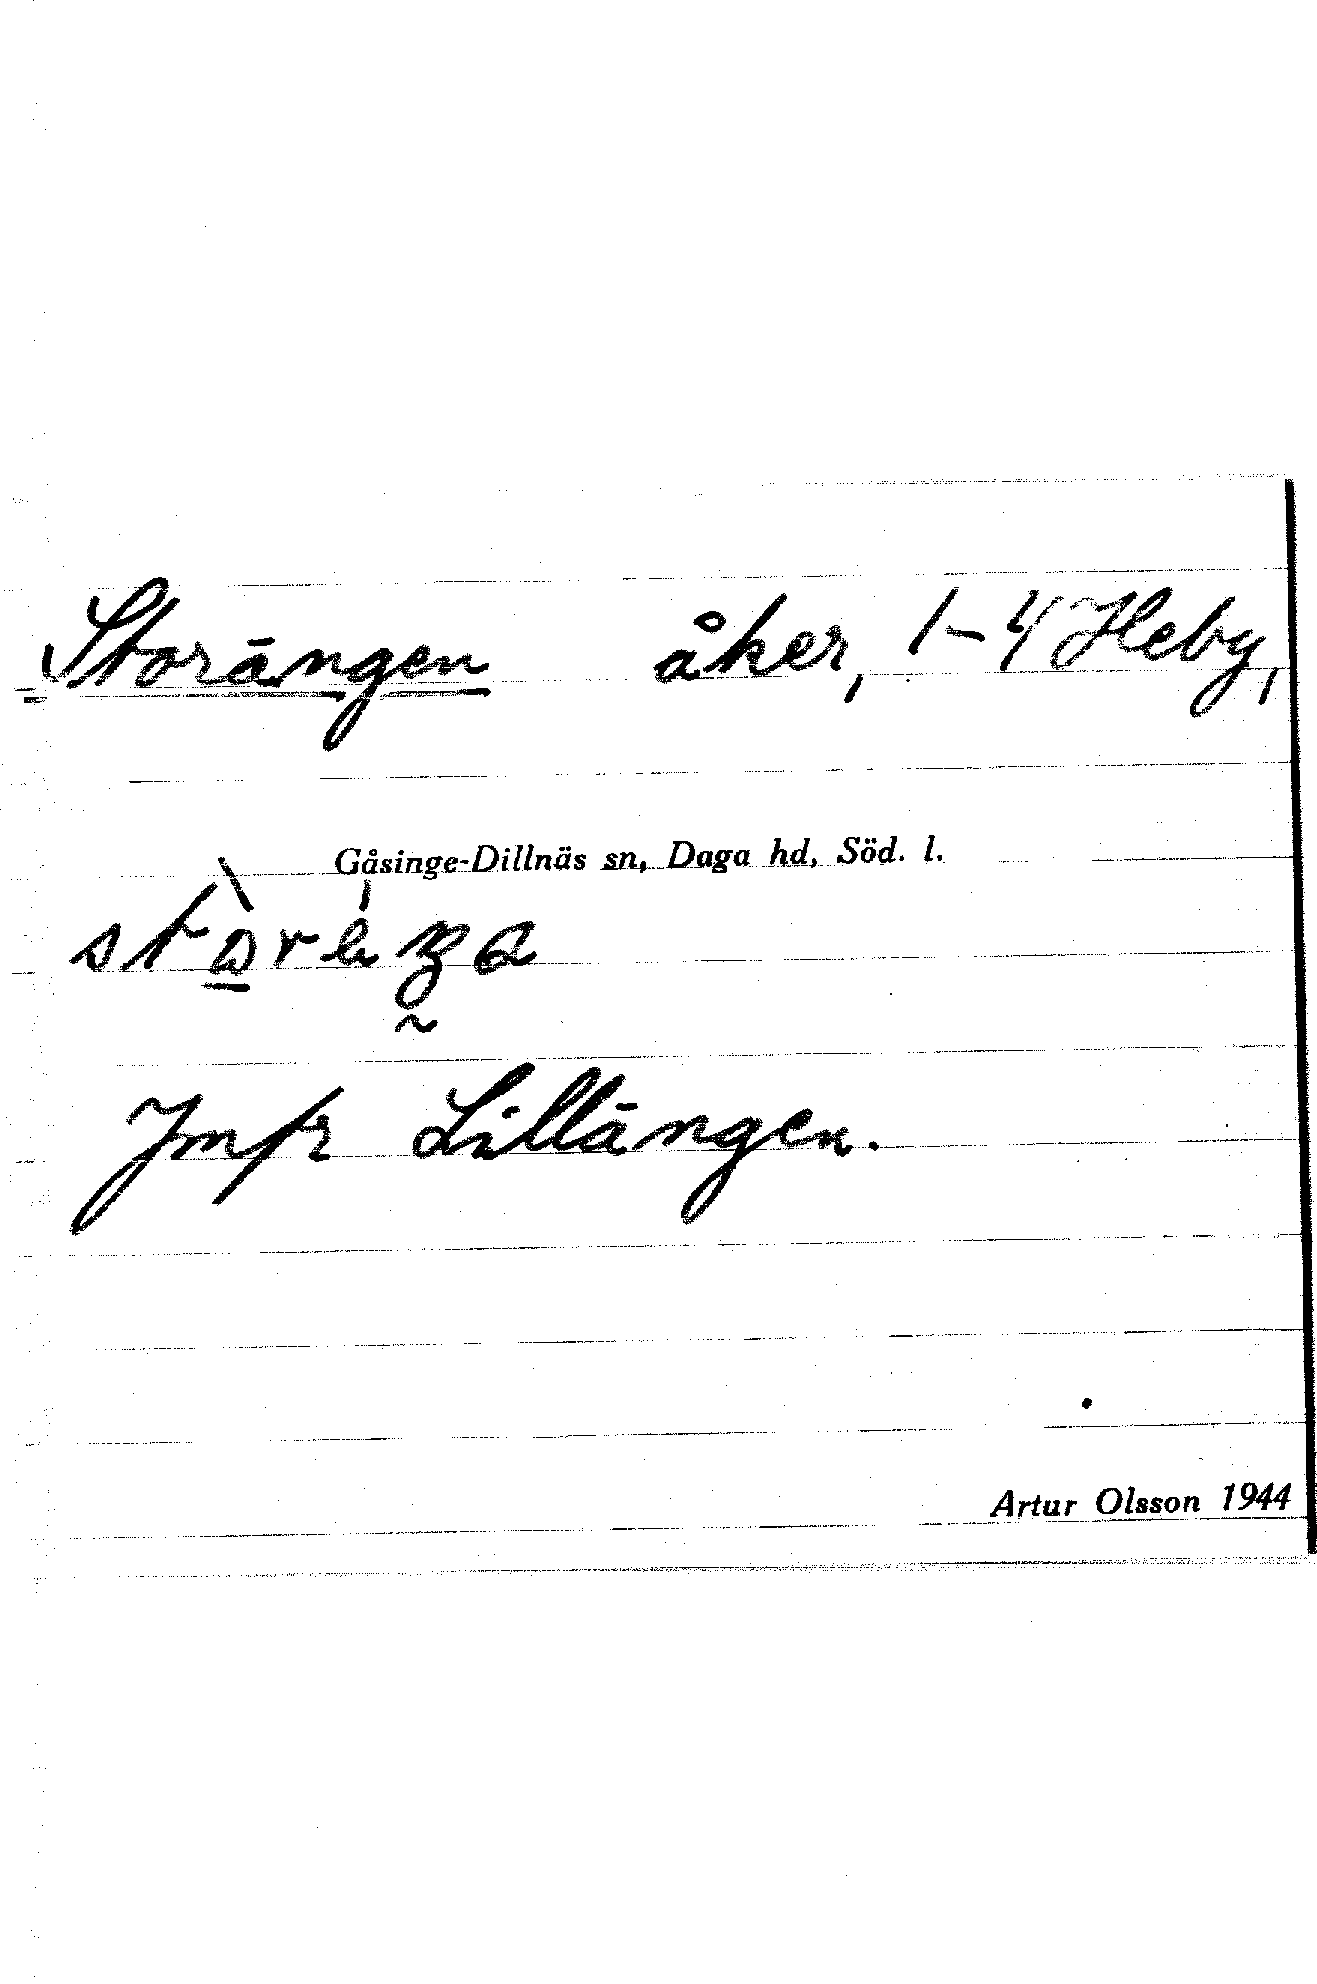 Storängen åker, 1-4 Heby,
Gåsinge-Dillnäs sn, Daga hd, Söd. l.
Jmfr Lillängen.
Artur Olsson 1944